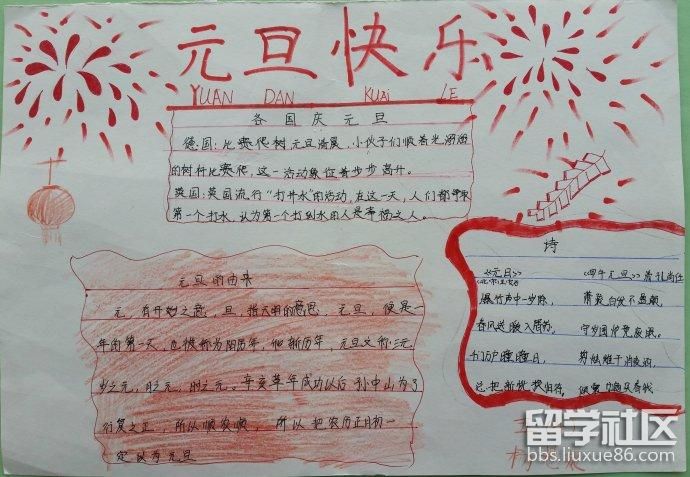 元旦快乐
YUAN DAN KUAI LE
各国庆元旦
德国:比赛爬树元旦活展,小伙子们顺着光溜溜
的树杆比赛爬,这一活动象征着步步高升。
英国:英国流行“打井水”的活动,在这一天,人们都争取
第一个打水,认为第一个打到水的人是幸福之人。
元旦的由来
元,有开始之意,旦,指天明的意思,元旦,便是一
年的第一天,也被称为阳历年,他新历年,元旦又称:三元
岁之元,月之元,时之元。辛亥革年成功以后孙中山为了
行夏之正,所以顺农顺,所以把农历正月初一
定 为元旦
诗
《元日》
爆竹声中一岁除,
春风送暖入屠苏,
千门万户曈曈日,
总把新桃换旧符。
《四年元旦》
萧疏白发不盈颠,
守岁围炉竟废眠。
剪烛
留学社区
bbs.liuxue86.com